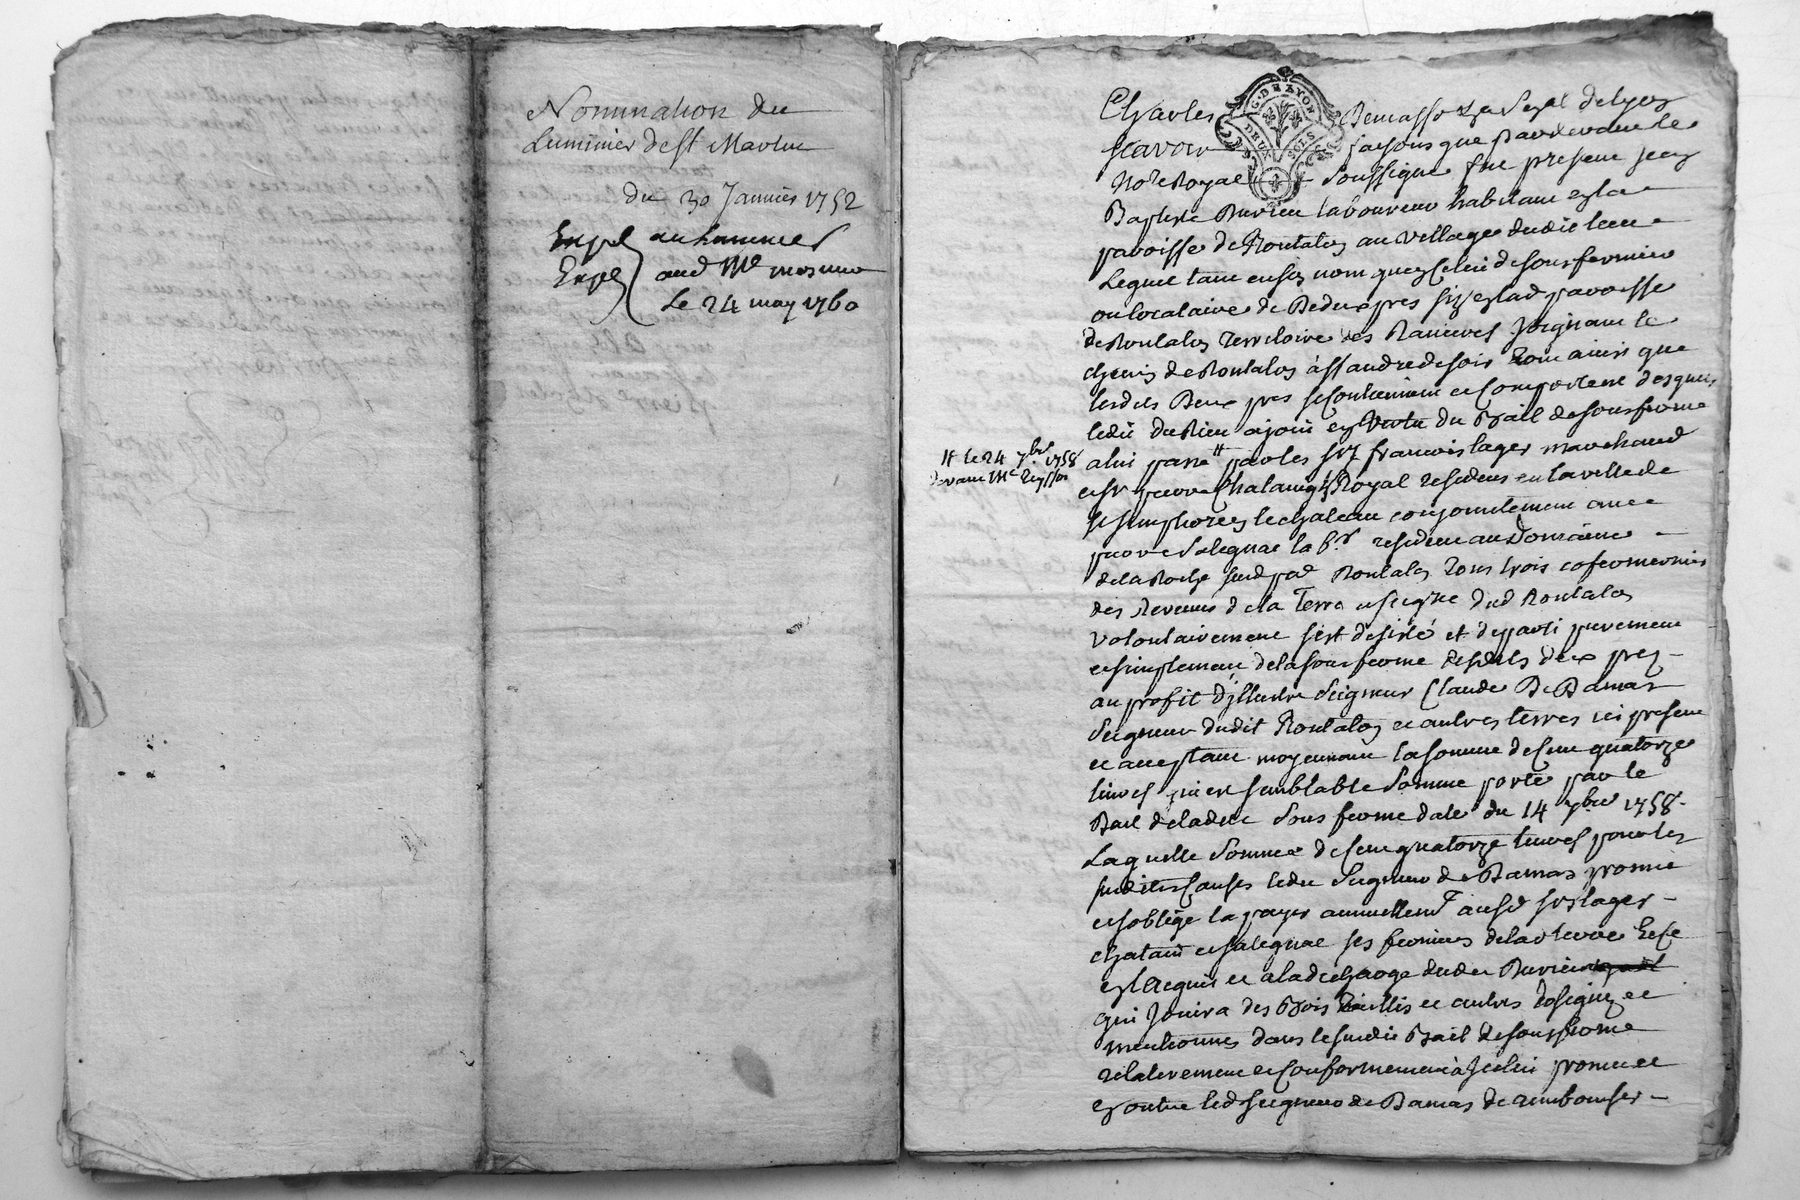 Nomination du
Luminier de St Martin
du 30 Janvier 1752
Expé au Luminier
Expé aud Me
Le 24 may 1760
G. DE LYON
DEUX SOLS
Charles Demasso de Lyon
scavoir faisons que pardevant le
Nore Royal soussigné fut present Jean
Baptiste laboureur habitant en la
paroisse de Rontalon au village dudit lieu
Lequel tant en son nom que en celui de sous fermier
ou locataire de Deux prés sis en lad paroisse
de Rontalon Territoire des Joignant le
chemin de Rontalon à St andré de soir Tout ainsi que
lesdits Deux prés se contiennent et comportent desquels
ledit a joui en vertu du Bail de sous ferme
a lui passé # par les srs francois lager marchand
# le 24 7bre 1758
devant Me
et sr pierre Royal residens en la ville de
St simphorien le chateau conjointement avec
pierre salignac la resident au Domaine
de la Roche susd psse Rontalon Tous trois cofermiers
des Revenus de la Terre et seigrie dud Rontalon
volontairement s'est desisté et departi purement
et simplement de la sous ferme desdits deux prez
au profit d'jllustre Seigneur Claude De Damas
Seigneur dudit Rontalon et autres terres ici present
et acceptant moyennant la somme de cent quatorze
livres qui est semblable somme porté par le
Bail de ladite sous ferme daté du 14 7bre 1758
Laquelle somme de cent quatorze livres pour les
susdites causes ledit Seigneur de Damas promet
et s'oblige la payer annuellemt ausd srs lager
et salignac ses fermiers de lad terre
en l'acquit et a la décharge dudit
qui Jouira des Bois Taillis et autres designés et
mentionnes dans le susdit Bail de sous ferme
relativement et conformement à Jcelui promet
en outre led seigneur de Damas de rembourser